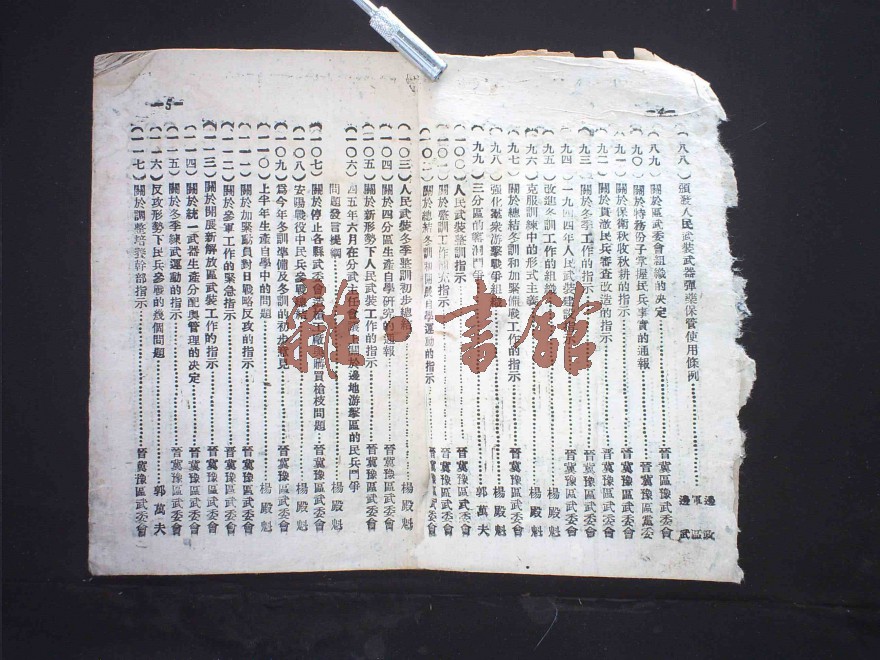 —4—
（八八）頒發人民武裝武器彈藥保管使用條例………邊 軍 邊 武 區 政
（八九）關於區武委會組織的決定………晉冀豫區武委會
（九〇）關於特務份子掌握民兵事實的通報………晉冀豫區黨委
（九一）關於保衛秋收秋耕的指示………晉冀豫區武委會
（九二）關於貫澈民兵審查改造的指示………晉冀豫區武委會
（九三）關於冬季工作的指示………晉冀豫區武委會
（九四）一九四四年人民武裝建設指示………晉冀豫區武委會
（九五）改進冬訓工作的組織………楊殿魁
（九六）克服訓練中的形式主義………楊殿魁
（九七）關於總結冬訓和加緊備戰工作的指示………晉冀豫區武委會
（九八）強化羣衆游擊戰爭組織………楊殿魁
（九九）三分區的 鬥爭………郭萬夫
（一〇〇）人民武裝整訓指示………晉冀豫區武委會
（一〇一）關於整訓工作補充指示………晉冀豫區武委會
（一〇二）關於總結冬訓和開展自學運動的指示………晉冀豫區武委會
—5—
（一〇三）人民武裝冬季整訓初步總結………楊殿魁
（一〇四）關於四分區生產自學研究的通報………晉冀豫區武委會
（一〇五）關於新形勢下人民武裝工作的指示………晉冀豫區武委會
（一〇六）四五年六月在分武主任會議上關於邊地游擊區的民兵鬥爭
問題發言提綱………楊殿魁
（一〇七）關於停止各縣武委會 工廠與購買槍枝問題………晉冀豫區武委會
（一〇八）安陽戰役中民兵參戰總結………楊殿魁
（一〇九）爲今年冬訓準備及冬訓的初步意見………晉冀豫區武委會
（一一〇）上半年生產自學中的問題………楊殿魁
（一一一）關於加緊動員對日戰略反攻的指示………晉冀豫區武委會
（一一二）關於參軍工作的緊急指示………晉冀豫區武委會
（一一三）關於開展新解放區武裝工作的指示………晉冀豫區武委會
（一一四）關於統一武器生產分配與管理的決定………晉冀豫區武委會
（一一五）關於冬季練武運動的指示………晉冀豫區武委會
（一一六）反攻形勢下民兵參戰的幾個問題………郭萬夫
（一一七）關於調整培養幹部指示………晉冀豫區武委會
雜·書館